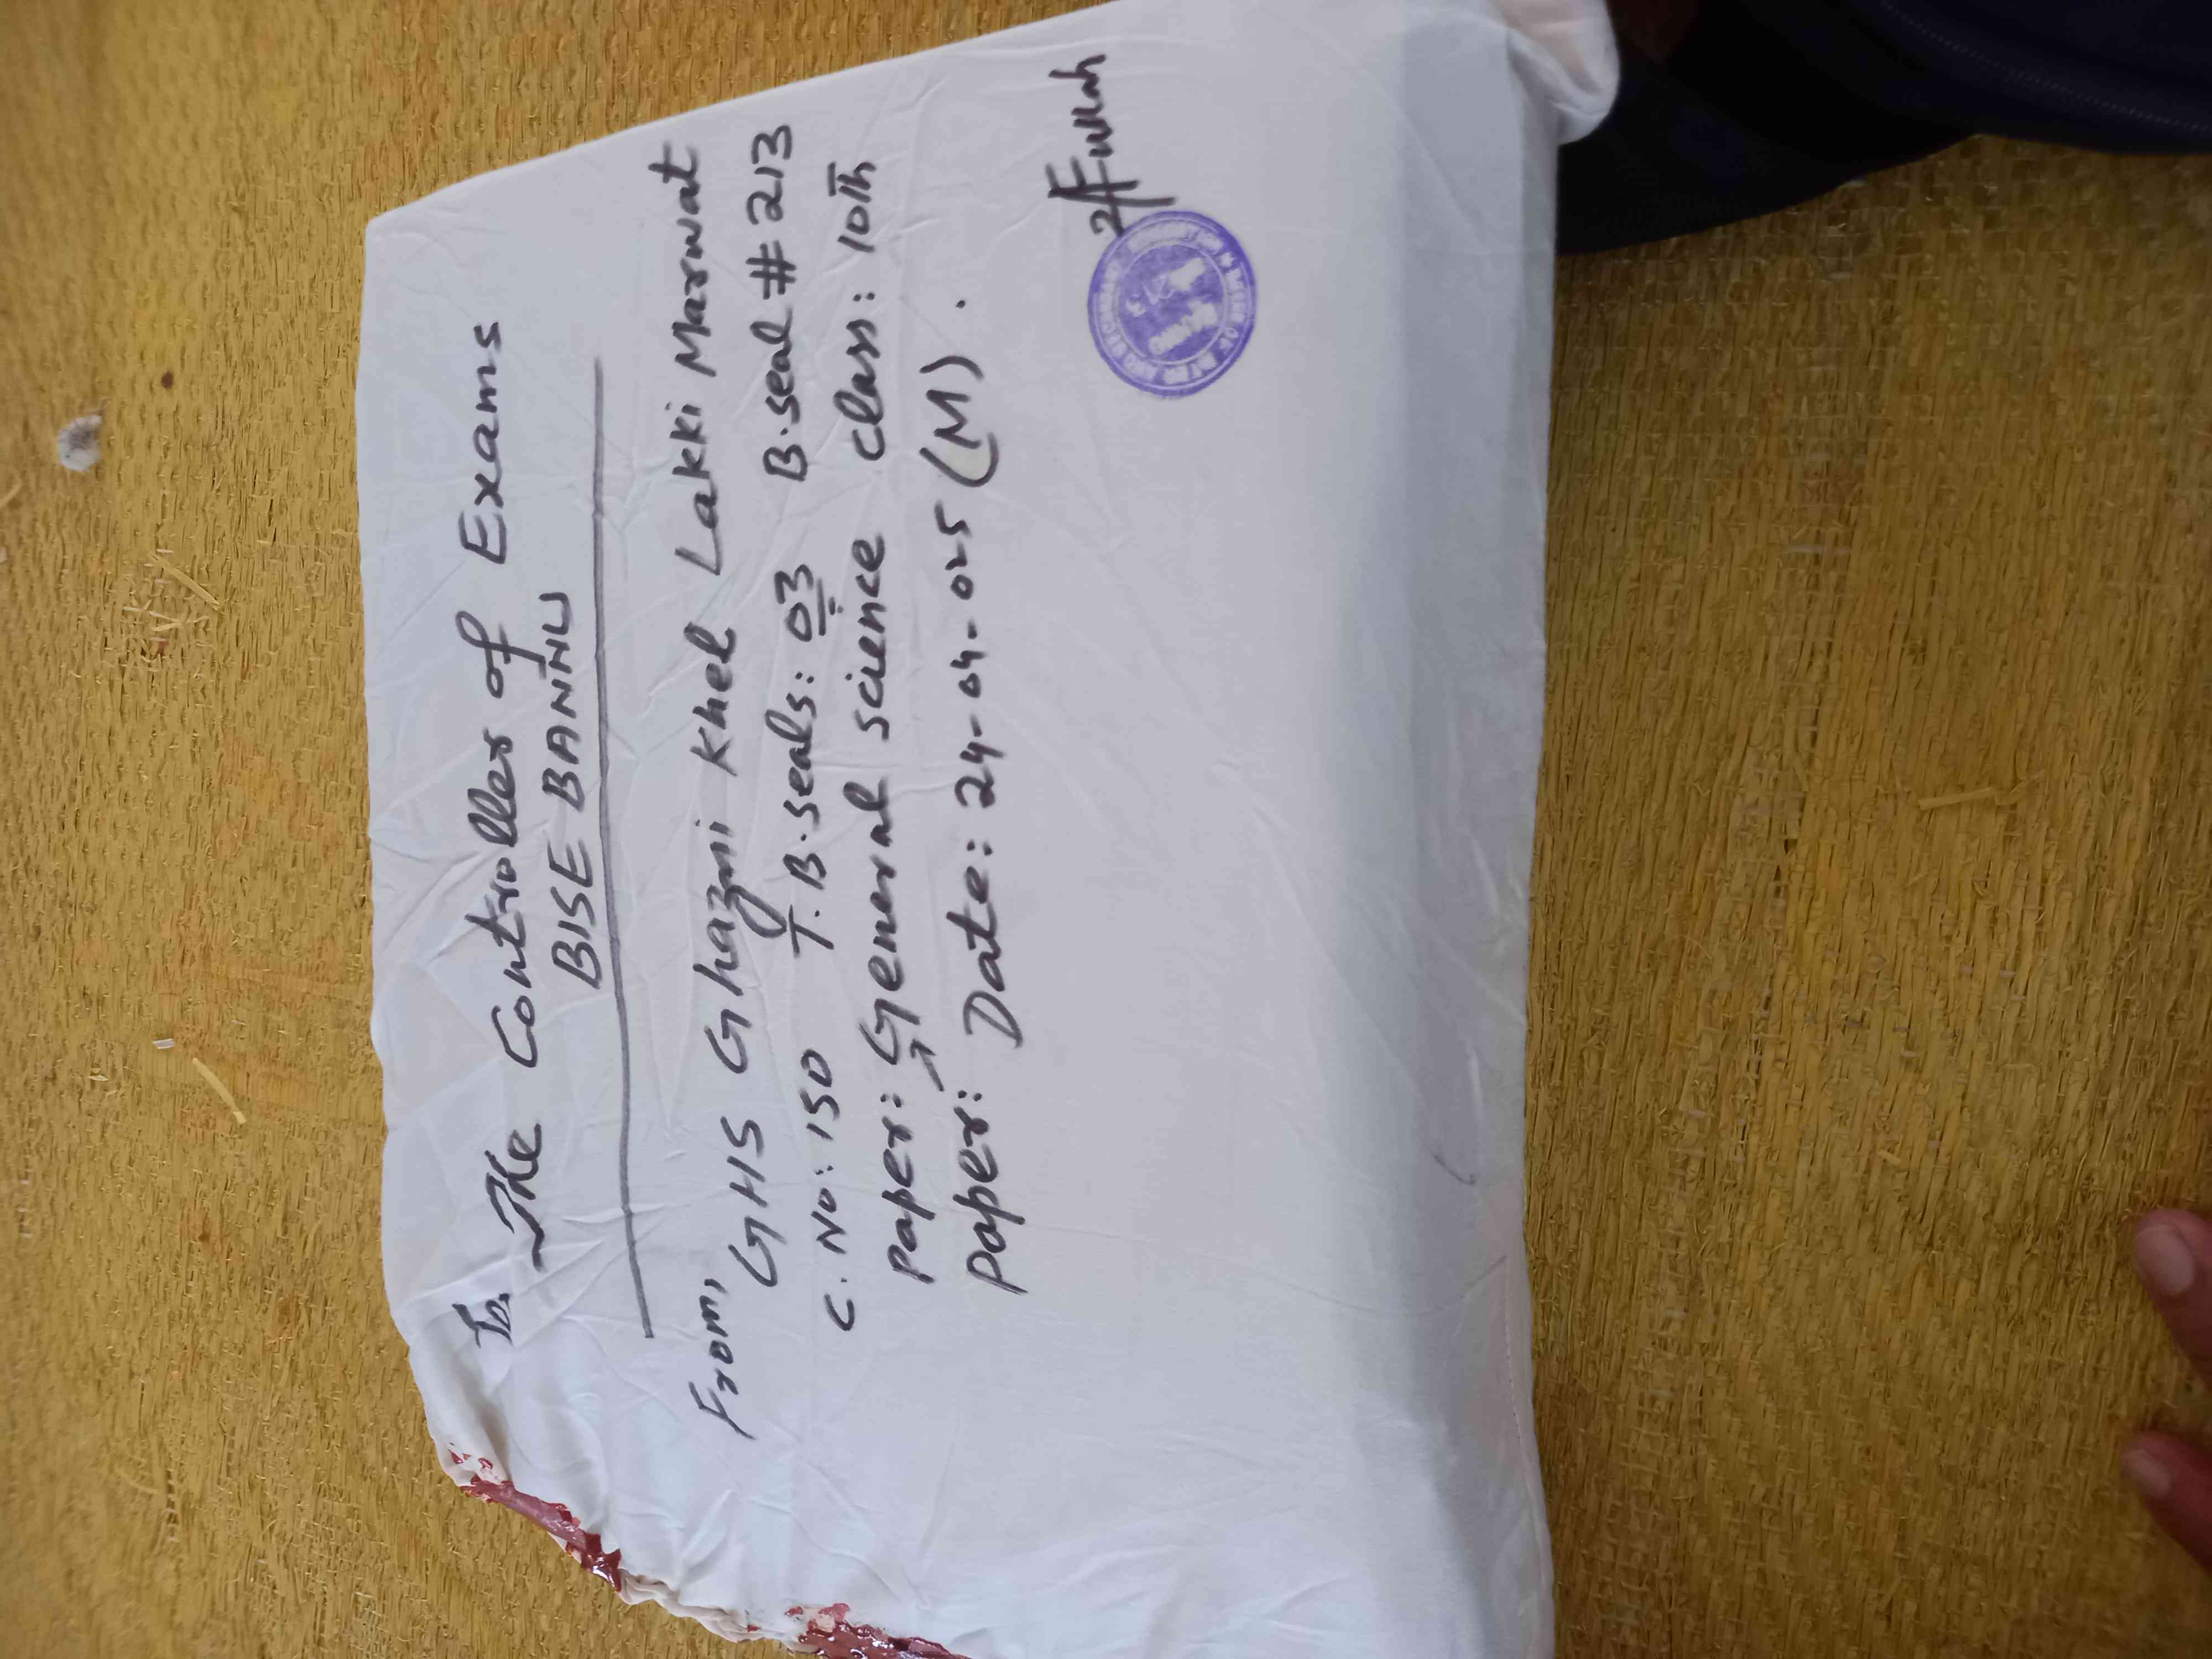 To,
The Controller of Exams
BISE BANNU
From,
GHS Ghazni Khel Lakki Marwat
C. No: 150 T.B.seals: 03 B.seal # 213
Paper: General science class: 10th
Paper: Date: 24-04-025 (M).